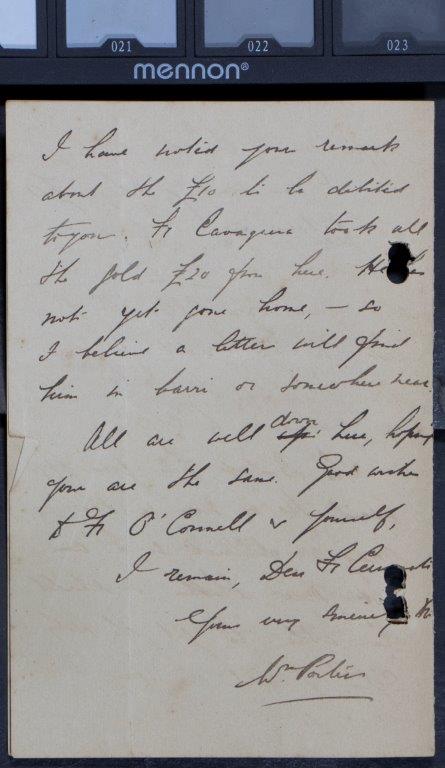 021 022 023
mennon®
I have noted your remark
about the £10 to be debited
to you. Fr Cavagnera took all
the gold £20 from here. He has
not yet gone home, — so
I believe a letter will find
him in barri or somewhere near.
All are well down here, hoping
you are the same. Good wishes
to Fr O'Connell & yourself,
I remain, Dear Fr
Yours very sincerely
Wm Porter